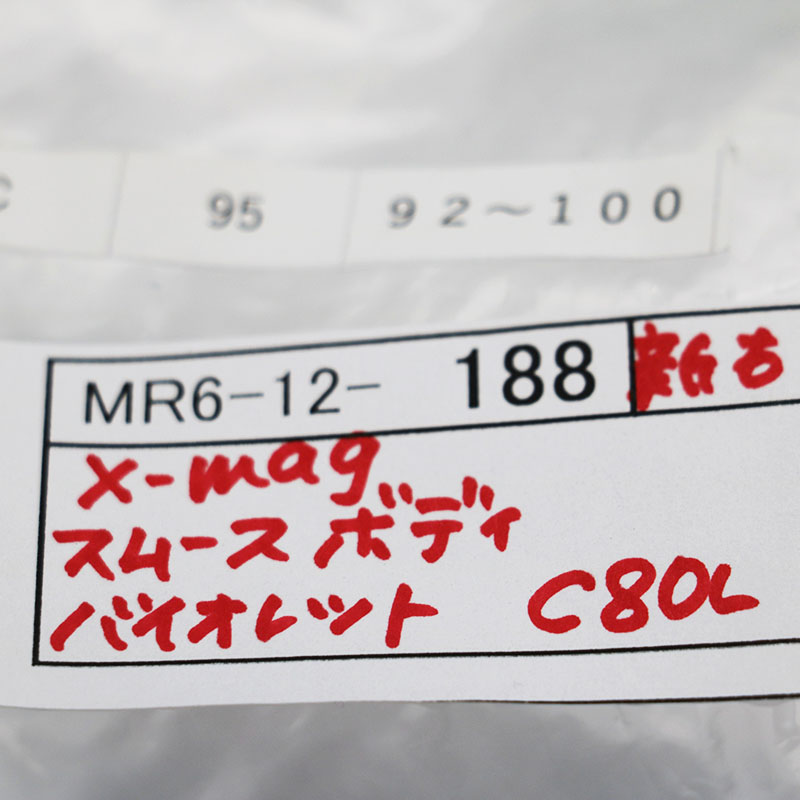 C 95 92～100
MR6-12- 188 新古
x-mag
スムース ボディ
バイオレット C80L